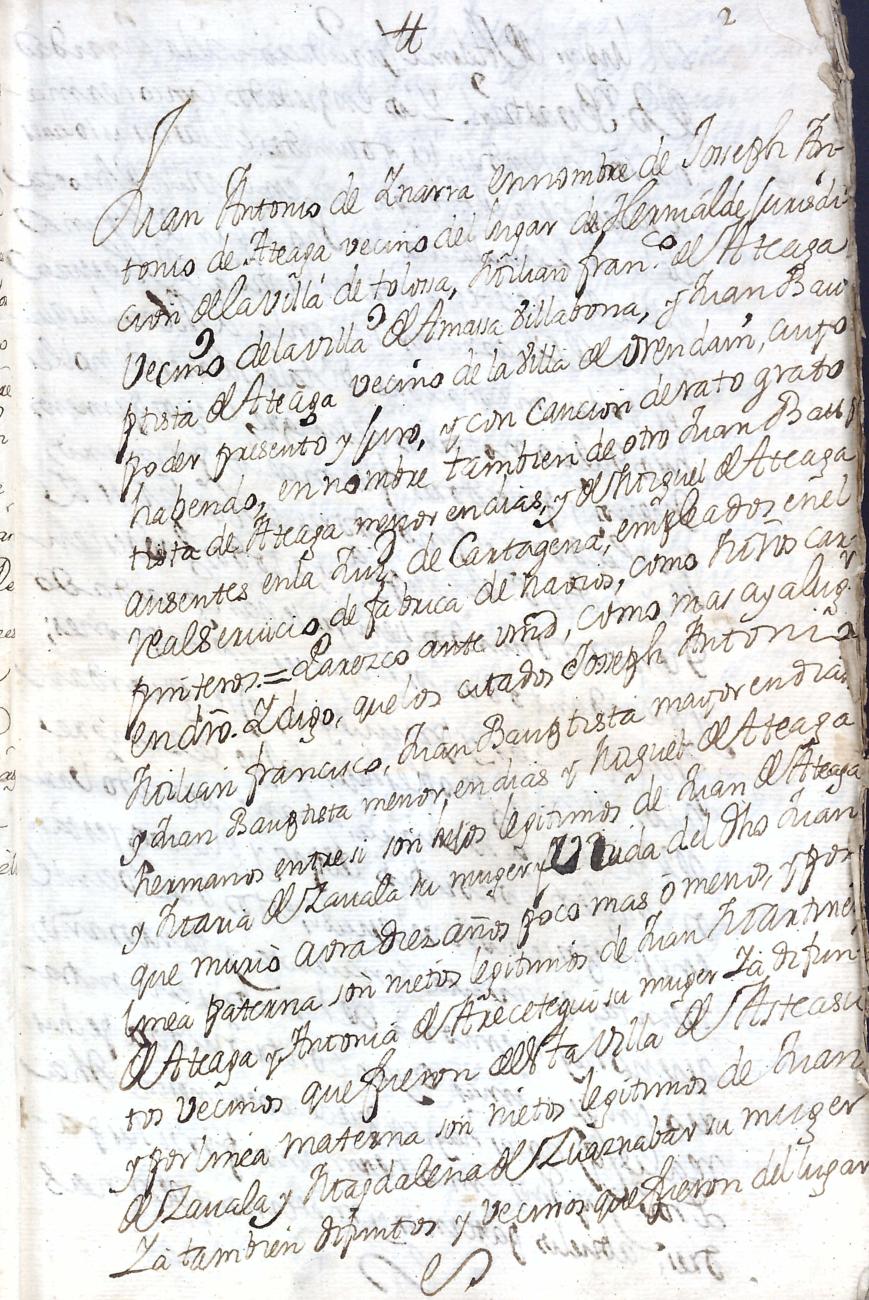 2
Juan Antonio de Ynarra en nombre de Joseph An-
tonio de Ateaga vecino del lugar de Hernialde Jurisdi-
cion de la villa de tolossa, Milian fran.co de Ateaga
Vecino de la villa de Amassa Villabona, y Juan Bau
ptista de Ateaga vecino de la Villa de Orendain, cuyo
poder presento y Juro, y con caucion de rato grato
habendo, en nombre tambien de otro Juan Baup
tista de Ateaga menor en dias, y de Miguel de Ateaga
ausentes en la de Cartagena, empleados en el
real servicio de fabrica de navios, como car-
pinteros. = Parezco ante vmd, como mas aya lug.r
en dro. Y digo, que los citados Joseph Antonio
Milian francisco, Juan Bauptista mayor en dias
y Juan Bauptista menor en dias y Miguel de Ateaga
hermanos entre si son hijos legitimos de Juan de Ateaga
y Maria de Zavala su muger y Viuda del dho Juan
que murio aora diez años poco mas ò menos, y por
linea paterna son nietos legitimos de Juan Martinez
de Ateaga y Antonia de Arrecetegui su muger Ya difun-
tos vecinos que fueron de esta Villa de Asteasu
y por linea materna son nietos legitimos de Juan
de Zavala y Magdalena de Zuaznabar su muger
Ya tambien difuntos y vecinos que fueron del lugar